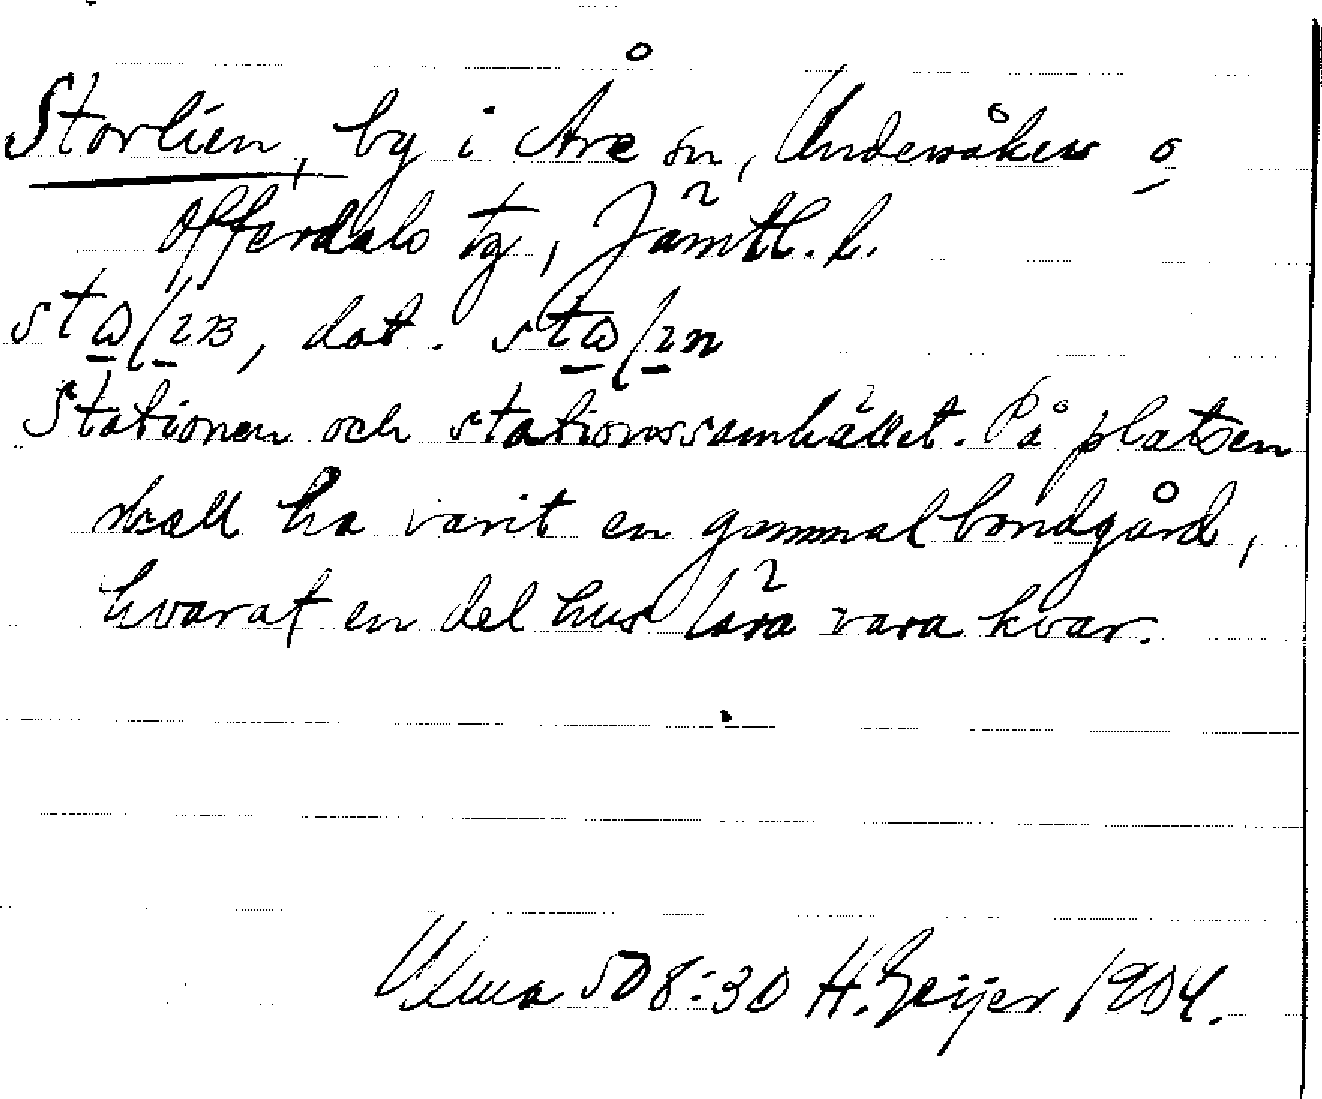 Storlien, by i Åre sn, Undersåkers o
Offerdals tg, Jämtl. l.
dat.
Stationen och stationssamhället. På platsen
skall ha varit en gammal bondgård,
hvaraf en del hus lära vara kvar.
Ulma 508:30 H. Geijer 1904.